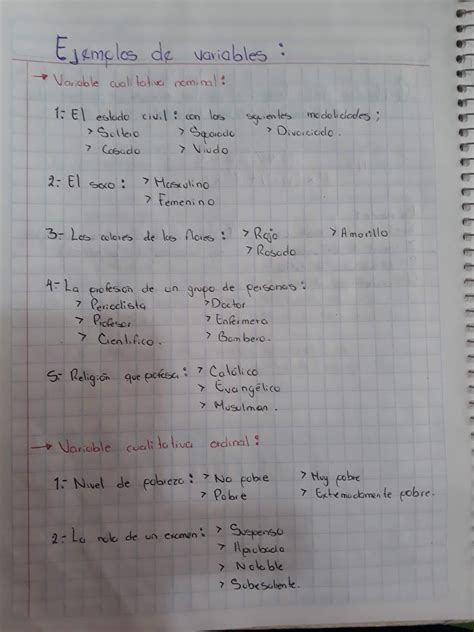 Ejemplos de variables:
→ Variable cualitativa nominal:
1.- El estado civil: con las siguientes modalidades:
> Soltero > Separado > Divorciado.
> Casado > Viudo
2.- El sexo: > Masculino
> Femenino
3.- Los colores de las flores: > Rojo > Amarillo
> Rosado
4.- La profesion de un grupo de personas:
> Periodista > Doctor
> Profesor > Enfermera
> Cientifico. > Bombero.
5.- Religión que profesa: > Católico
> Evangélico
> Musulman.
→ Variable cualitativa ordinal:
1.- Nivel de pobreza: > No pobre > Muy pobre
> Pobre > Extremadamente pobre.
2.- La nota de un examen: > Suspenso
> Aprobado
> Notable
> Sobresaliente.